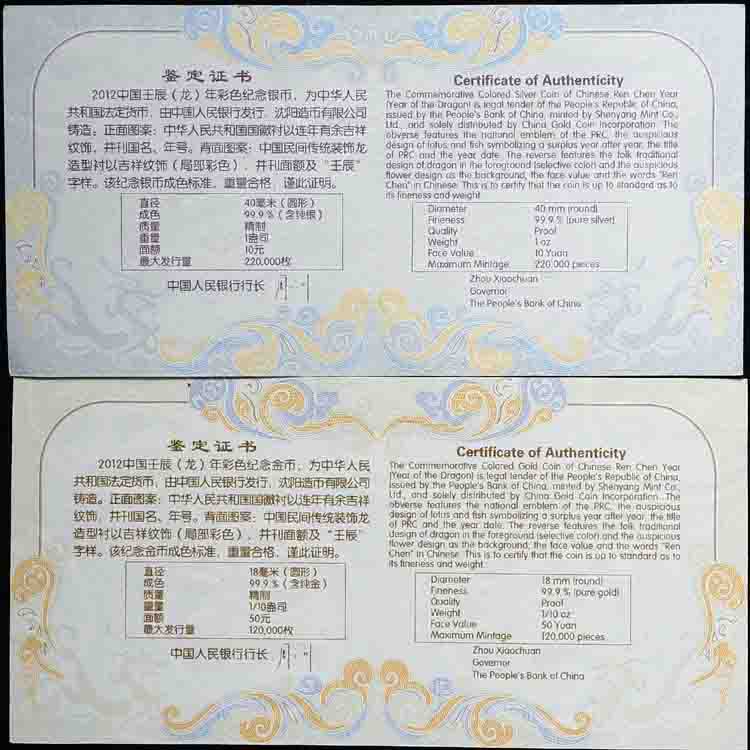 鉴定证书
2012中国壬辰（龙）年彩色纪念银币，为中华人民
共和国法定货币，由中国人民银行发行，沈阳造币有限公司
铸造。正面图案：中华人民共和国国徽衬以连年有余吉祥
纹饰，并刊国名、年号。背面图案：中国民间传统装饰龙
造型衬以吉祥纹饰（局部彩色），并刊面额及“壬辰”
字样。该纪念银币成色标准，重量合格，谨此证明。
直径 40毫米（圆形）
成色 99.9％（含纯银）
质量 精制
重量 1盎司
面额 10元
最大发行量 220,000枚
中国人民银行行长
Certificate of Authenticity
The Commemorative Colored Silver Coin of Chinese Ren Chen Year
(Year of the Dragon) is legal tender of the People's Republic of China,
issued by the People's Bank of China, minted by Shenyang Mint Co.,
Ltd., and solely distributed by China Gold Coin Incorporation. The
obverse features the national emblem of the PRC, the auspicious
design of lotus and fish symbolizing a surplus year after year, the title
of PRC and the year date. The reverse features the folk traditional
design of dragon in the foreground (selective color) and the auspicious
flower design as the background, the face value and the words "Ren
Chen" in Chinese. This is to certify that the coin is up to standard as to
its fineness and weight.
Diameter 40 mm (round)
Fineness 99.9% (pure silver)
Quality Proof
Weight 1 oz
Face Value 10 Yuan
Maximum Mintage 220,000 pieces
Zhou Xiaochuan
Governor
The People's Bank of China
鉴定证书
2012中国壬辰（龙）年彩色纪念金币，为中华人民
共和国法定货币，由中国人民银行发行，沈阳造币有限公司
铸造。正面图案：中华人民共和国国徽衬以连年有余吉祥
纹饰，并刊国名、年号。背面图案：中国民间传统装饰龙
造型衬以吉祥纹饰（局部彩色），并刊面额及“壬辰”
字样。该纪念金币成色标准，重量合格，谨此证明。
直径 18毫米（圆形）
成色 99.9％（含纯金）
质量 精制
重量 1/10盎司
面额 50元
最大发行量 120,000枚
中国人民银行行长
Certificate of Authenticity
The Commemorative Colored Gold Coin of Chinese Ren Chen Year
(Year of the Dragon) is legal tender of the People's Republic of China,
issued by the People's Bank of China, minted by Shenyang Mint Co.,
Ltd., and solely distributed by China Gold Coin Incorporation. The
obverse features the national emblem of the PRC, the auspicious
design of lotus and fish symbolizing a surplus year after year, the title
of PRC and the year date. The reverse features the folk traditional
design of dragon in the foreground (selective color) and the auspicious
flower design as the background, the face value and the words "Ren
Chen" in Chinese. This is to certify that the coin is up to standard as to
its fineness and weight.
Diameter 18 mm (round)
Fineness 99.9% (pure gold)
Quality Proof
Weight 1/10 oz
Face Value 50 Yuan
Maximum Mintage 120,000 pieces
Zhou Xiaochuan
Governor
The People's Bank of China